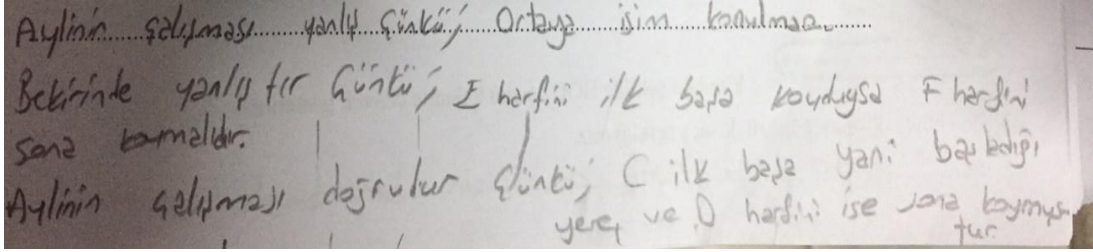 Aylinin çalışması yanlış Çünkü; Ortaya isim konulmaz.
Bekirinde yanlıştır Çünkü; E harfini ilk başa koyduysa F harfini
sona koymalıdır.
Aylinin çalışması doğrudur Çünkü; C ilk başa yani başladığı
yere, ve D harfini ise sona koymuş
tur.